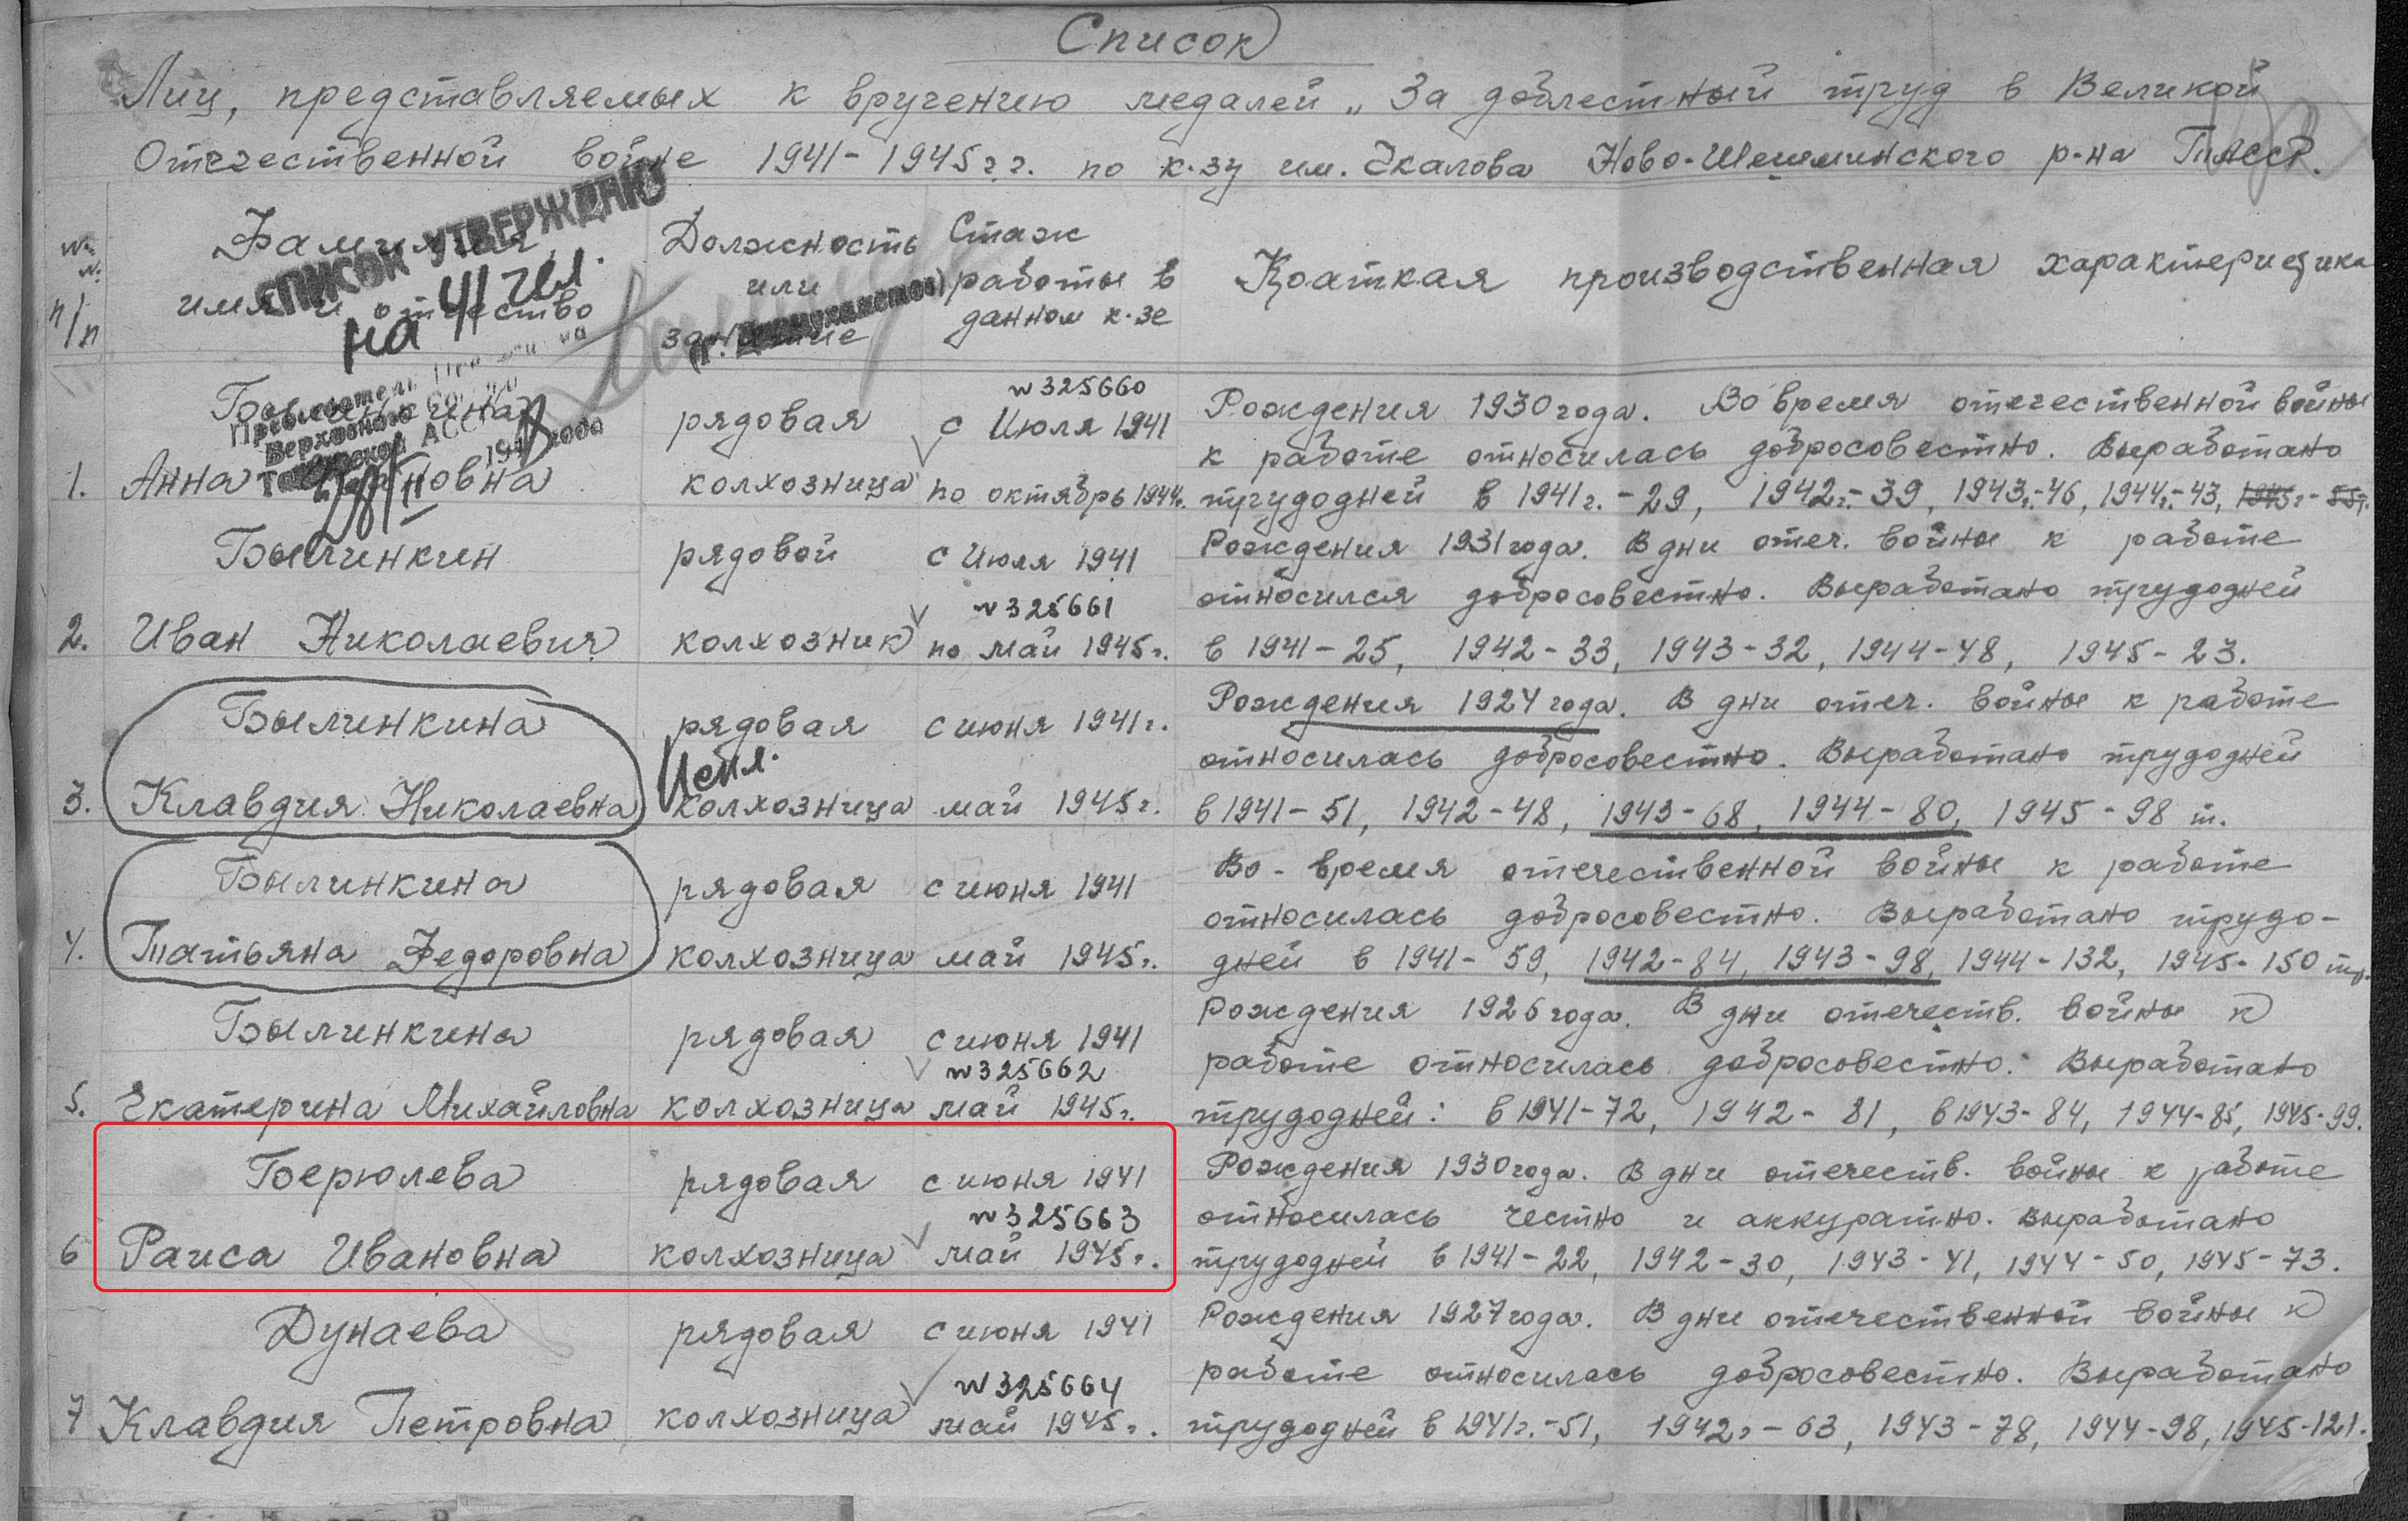 Список
Лиц, представляемых к вручению медалей „За доблестный труд в Великой
Отечественной войне 1941-1945 г.г. по к-зу им. Чкалова Ново-Шешминского р-на ТАССР.
№№ п/п
Фамилия, имя и отчество
Должность или занятие
Стаж работы в данном к-зе
Краткая производственная характеристика
СПИСОК УТВЕРЖДАЮ
на 41 чел.
Председатель Президиума
Верховного Совета
Татарской АССР
194 года
1. Былинкина Анна Ивановна
рядовая колхозница
№325660
с Июля 1941 по октябрь 1944г.
Рождения 1930 года. Во время отечественной войны
к работе относилась добросовестно. Выработано
трудодней в 1941г.-29, 1942г.-39, 1943г.-46, 1944г.-43, 1945г.-55т.
2. Былинкин Иван Николаевич
рядовой колхозник
с Июля 1941
№325661
по май 1945г.
Рождения 1931 года. В дни отеч. войны к работе
относился добросовестно. Выработано трудодней
в 1941-25, 1942-33, 1943-32, 1944-48, 1945-23.
3. Былинкина Клавдия Николаевна
рядовая
Искл.
колхозница
с июня 1941г.
май 1945г.
Рождения 1924 года. В дни отеч. войны к работе
относилась добросовестно. Выработано трудодней
в 1941-51, 1942-48, 1943-68, 1944-80, 1945-98 т.
4. Былинкина Татьяна Федоровна
рядовая колхозница
с июня 1941
май 1945г.
Во-время отечественной войны к работе
относилась добросовестно. Выработано трудо-
дней в 1941-59, 1942-84, 1943-98, 1944-132, 1945-150 тр.
5. Былинкина Екатерина Михайловна
рядовая колхозница
с июня 1941
№325662
май 1945г.
Рождения 1926 года. В дни отечеств. войны к
работе относилась добросовестно. Выработано
трудодней: в 1941-72, 1942-81, в 1943-84, 1944-85, 1945-99.
6 Берюлева Раиса Ивановна
рядовая колхозница
с июня 1941
№325663
май 1945г.
Рождения 1930 года. В дни отечеств. войны к работе
относилась честно и аккуратно. Выработано
трудодней в 1941-22, 1942-30, 1943-41, 1944-50, 1945-73.
7 Дунаева Клавдия Петровна
рядовая колхозница
с июня 1941
№325664
май 1945г.
Рождения 1927 года. В дни отечественной войны к
работе относилась добросовестно. Выработано
трудодней в 1941г.-51, 1942г-63, 1943-78, 1944-98, 1945-121.